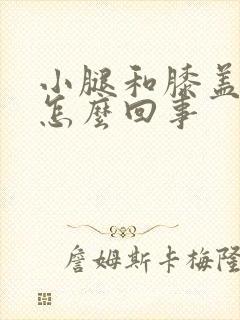 小腿和膝盖
怎麼回事
詹姆斯卡梅隆